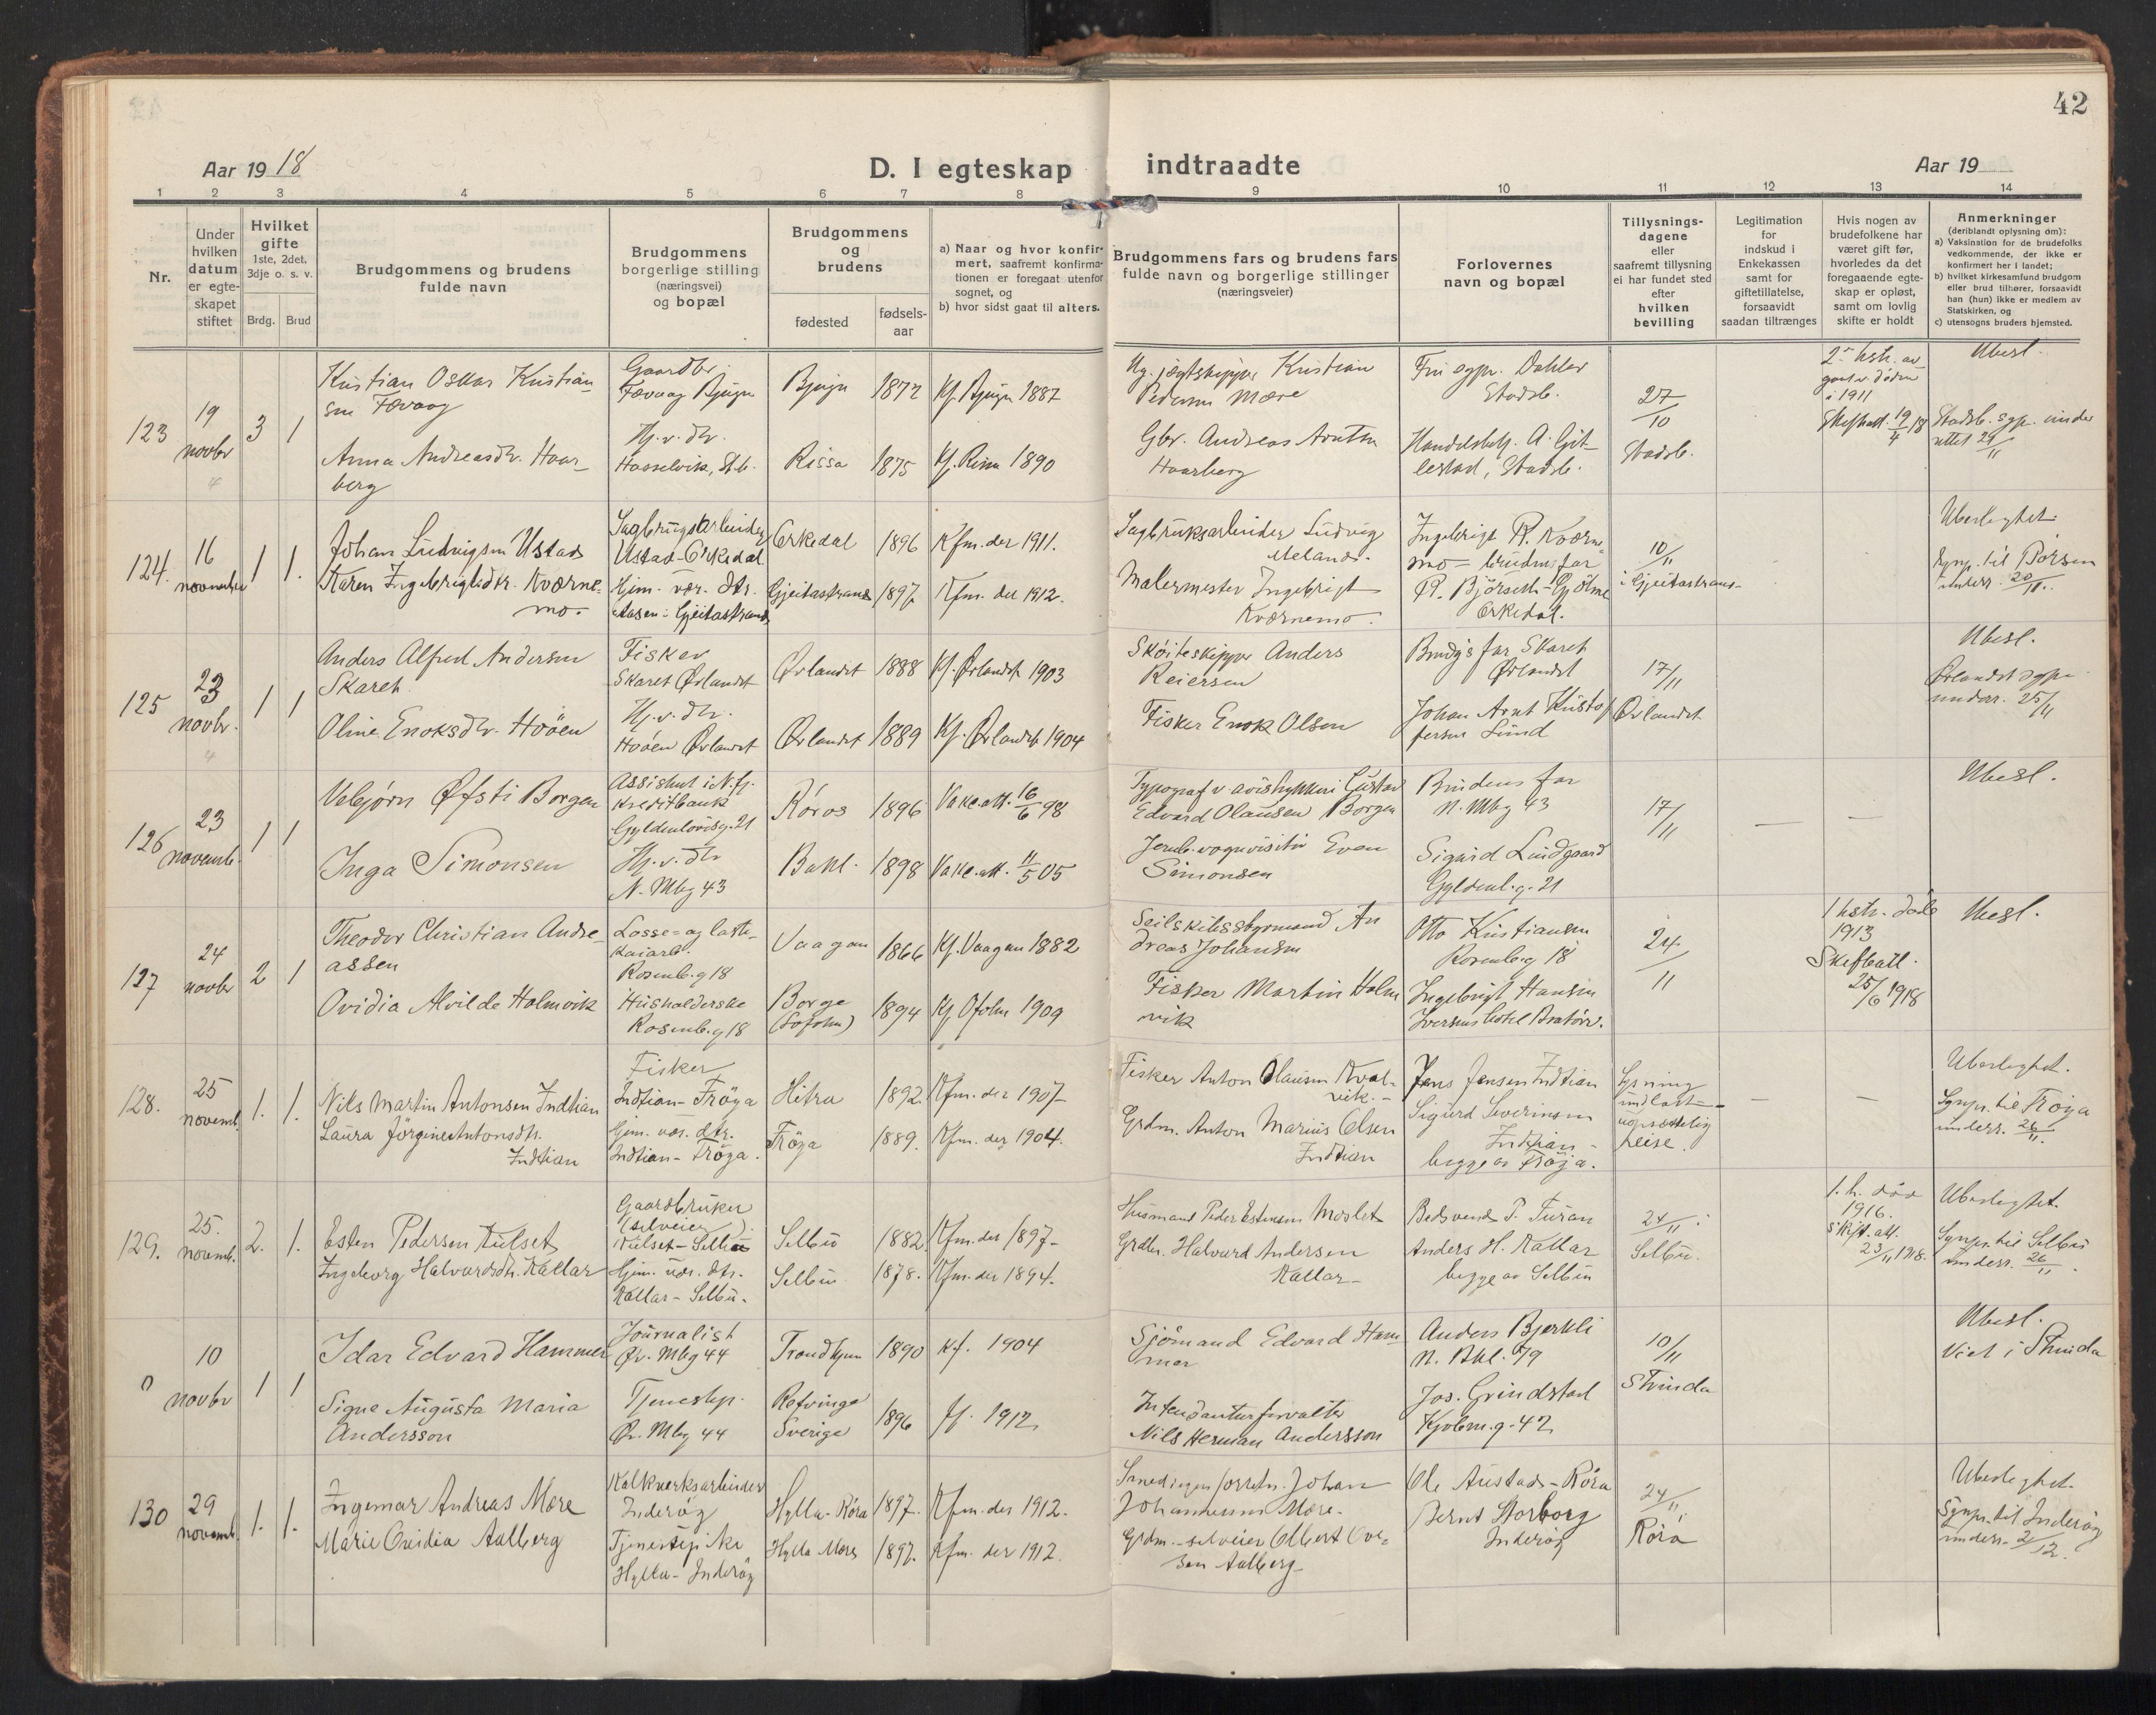 42
Aar 19 18
D. I egteskap indtraadte
Aar 19
1 2 3 4 5 6 7 8 9 10 11 12 13 14
Nr.
Under
hvilken
datum
er egte-
skapet
stiftet
Hvilket
gifte
1ste, 2det,
3dje o. s. v.
Brdg. Brud
Brudgommens og brudens
fulde navn
Brudgommens
borgerlige stilling
(næringsvei)
og bopæl
Brudgommens
og
brudens
fødested
fødsels-
aar
a) Naar og hvor konfir-
mert, saafremt konfirma-
tionen er foregaat utenfor
sognet, og
b) hvor sidst gaat til alters.
Brudgommens fars og brudens fars
fulde navn og borgerlige stillinger
(næringsveier)
Forlovernes
navn og bopæl
Tillysnings-
dagene
eller
saafremt tillysning
ei har fundet sted
efter
hvilken
bevilling
Legitimation
for
indskud i
Enkekassen
samt for
giftetillatelse,
forsaavidt
saadan tiltrænges
Hvis nogen av
brudefolkene har
været gift før,
hvorledes da det
foregaaende egte-
skap er opløst,
samt om lovlig
skifte er holdt
Anmerkninger
(deriblandt oplysning om):
a) Vaksination for de brudefolks
vedkommende, der ikke er
konfirmert her i landet;
b) hvilket kirkesamfund brudgom
eller brud tilhører, forsaavidt
han (hun) ikke er medlem av
Statskirken, og
c) utensogns bruders hjemsted.
123
19
novbr
3 1
Kristian Oskar Kristian
sen Fævaag
Anna Andreasdr. Haar-
berg
Gaardbr.
Fævaag Bjugn
Hj. v. dtr.
Hasselvik, St.b.
Bjugn 1872 Kf. Bjugn 1887
Rissa 1875 Kf. Rissa 1890
Kristian
Pedersen Mære
Gbr. Andreas Arntsen
Haarberg
Dahler
Stadsb.
Handelsbest. A. Gjit-
lestad, Stadsb.
27/10
Stadsb.
i 1911
Skifteatt. 19/4 18
Ubesl.
Stadsb. sgp. under
rettet 29/11
124.
16
november
1 1.
Johan Ludvigsen Ustad
Karen Ingebrigtsdtr. Kværne-
mo.
Sagbrugsarbeider
Ustad-Orkedal
Hjem. vær. dtr.
Aasen: Gjeitastrand
Orkedal 1896 Kfm. der 1911.
Gjeitastrand 1897. Kfm. der 1912.
Sagbruksarbeider Ludvig
Meland.
Malermester Ingebrigt
Kværnemo.
Ingebrigt R. Kværne-
mo - brudens far
R. Björseth - Gjölme
Orkedal.
10/11
i Gjeitastrand-
Ubeslegtet.
Sgnpr. til Börsen
underr. 20/11.
125
23
novbr.
1 1
Anders Alfred Andersen
Skaret
Oline Enoksdr. Hoöen
Fisker
Skaret Ørlandet
Hj. v. dtr.
Hoöen Ørlandet
Ørlandet 1888 Kf. Ørlandet 1903
Ørlandet 1889 Kf. Ørlandet 1904
Skøiteskipper Anders
Reiersen
Fisker Enok Olsen
Brudgs far Skaret
Ørlandet
Johan Arnt Kristof
fersen Lund
17/11
Ørlandet
Ubesl.
Ørlandet sgpr.
underr. 25/11
126
23
novemb.
1 1
Vebjørn Øfsti Borgen
Inga Simonsen
Assistent i N.fj.
Kreditbank
Gyldenlövesg. 21
Hj. v. dtr
N. Mbg 43
Røros 1896 Vakc.att. 16/6 98
Bakl. 1898 Vakc.att. 11/5 05
Typograf v avistrykkeri Gustav
Edvard Olausen Borgen
Jernb. vognvisitør Even
Simonsen
Brudens far
N. Mbg 43
Sigurd Lindgaard
Gyldenl.g. 21
17/11
Ubesl.
127
24
novbr
2 1
Theodor Christian Andre-
assen
Ovidia Alvilde Holmvik
Losse- og laste-
kaiarb.
Rosenb.g 18
Husholderske
Rosenb.g 18
Vaagan 1866 Kf. Vaagan 1882
Borge
(Lofoten) 1894 Kf. Ofoten 1909
Seilskibsstyrmand An
dreas Johansen
Fisker Martin Holm
vik
Otto Kristiansen
Rosenb.g 18
Ingebrigt Hansen
Iversens hotel Bratørv.
24/11
1 hstr. døde
1913
Skifteatt.
25/6 1918
Ubesl.
128.
25
novemb.
1. 1.
Nils Martin Antonsen Indtian
Laura Jörgine Antonsdtr.
Indtian
Fisker
Indtian - Fröya
Hjem. vær. dtr.
Indtian - Fröya.
Hitra 1892. Kfm. der 1907-
Fröya 1889. Kfm. der 1904.
Fisker Anton Olausen Kval-
vik.
Grdm. Anton Marius Olsen
Indtian
Jens Jensen Indtian
Sigurd Severinsen
Indtian -
begge av Fröya.
Lysning
undlatt -
uopsættelig
reise.
Ubeslegtet.
Sgnpr. til Fröya
underr. 26/11.
129.
25.
novemb.
2. 1.
Esten Pedersen Kulset
Ingeborg Halvardsdtr. Kallar
Gaardbruker
(selveier).
Kulset - Selbu
Hjem. vær. dtr.
Kallar - Selbu.
Selbu 1882. Kfm. der 1897-
Selbu 1878. Kfm. der 1894.
Husmand Peder Estensen Moslet
Grdbr. Halvard Andersen
Kallar
P. Furan
Anders H. Kallar
begge av Selbu
24/11 i
Selbu.
1. h. död
1916.
Skift. att.
23/11 1918.
Ubeslegtet.
Sgnpr. til Selbu
underr. 26/11.
0
10
novbr
1 1
Idar Edvard Hammer
Signe Augusta Maria
Andersson
Journalist
Øv. Mbg 44
Tjenestep.
Øv. Mbg 44
Trondhjem 1890 Kf. 1904
Refvinge
Sverige 1896 Kf. 1912
Sjömand Edvard Ham-
mer
Intendanturforvalter
Nils Herman Andersson
Anders Bjerkli
N. Bkl. 79
Jos. Grindstad
Kjobm.g. 42
10/11
Strinda
Ubesl.
Viet i Strinda
130
29
novemb.
1. 1.
Ingemar Andreas Mære
Marie Ovidia Aalberg
Kalkverksarbeider
Inderöy
Tjenestepike
Hylla - Inderöy
Hylla - Röra 1897. Kfm. der 1912.
Hylla Mære 1897. Kfm. der 1912.
Johan
Johannesen Mære.
Grdm. - selveier Olbert Ove-
sen Aalberg
Ole Austad - Röra
Bernt Storborg
Inderöy
24/11
Röra
Ubeslegtet.
Sgnpr. til Inderöy
underr. 2/12.